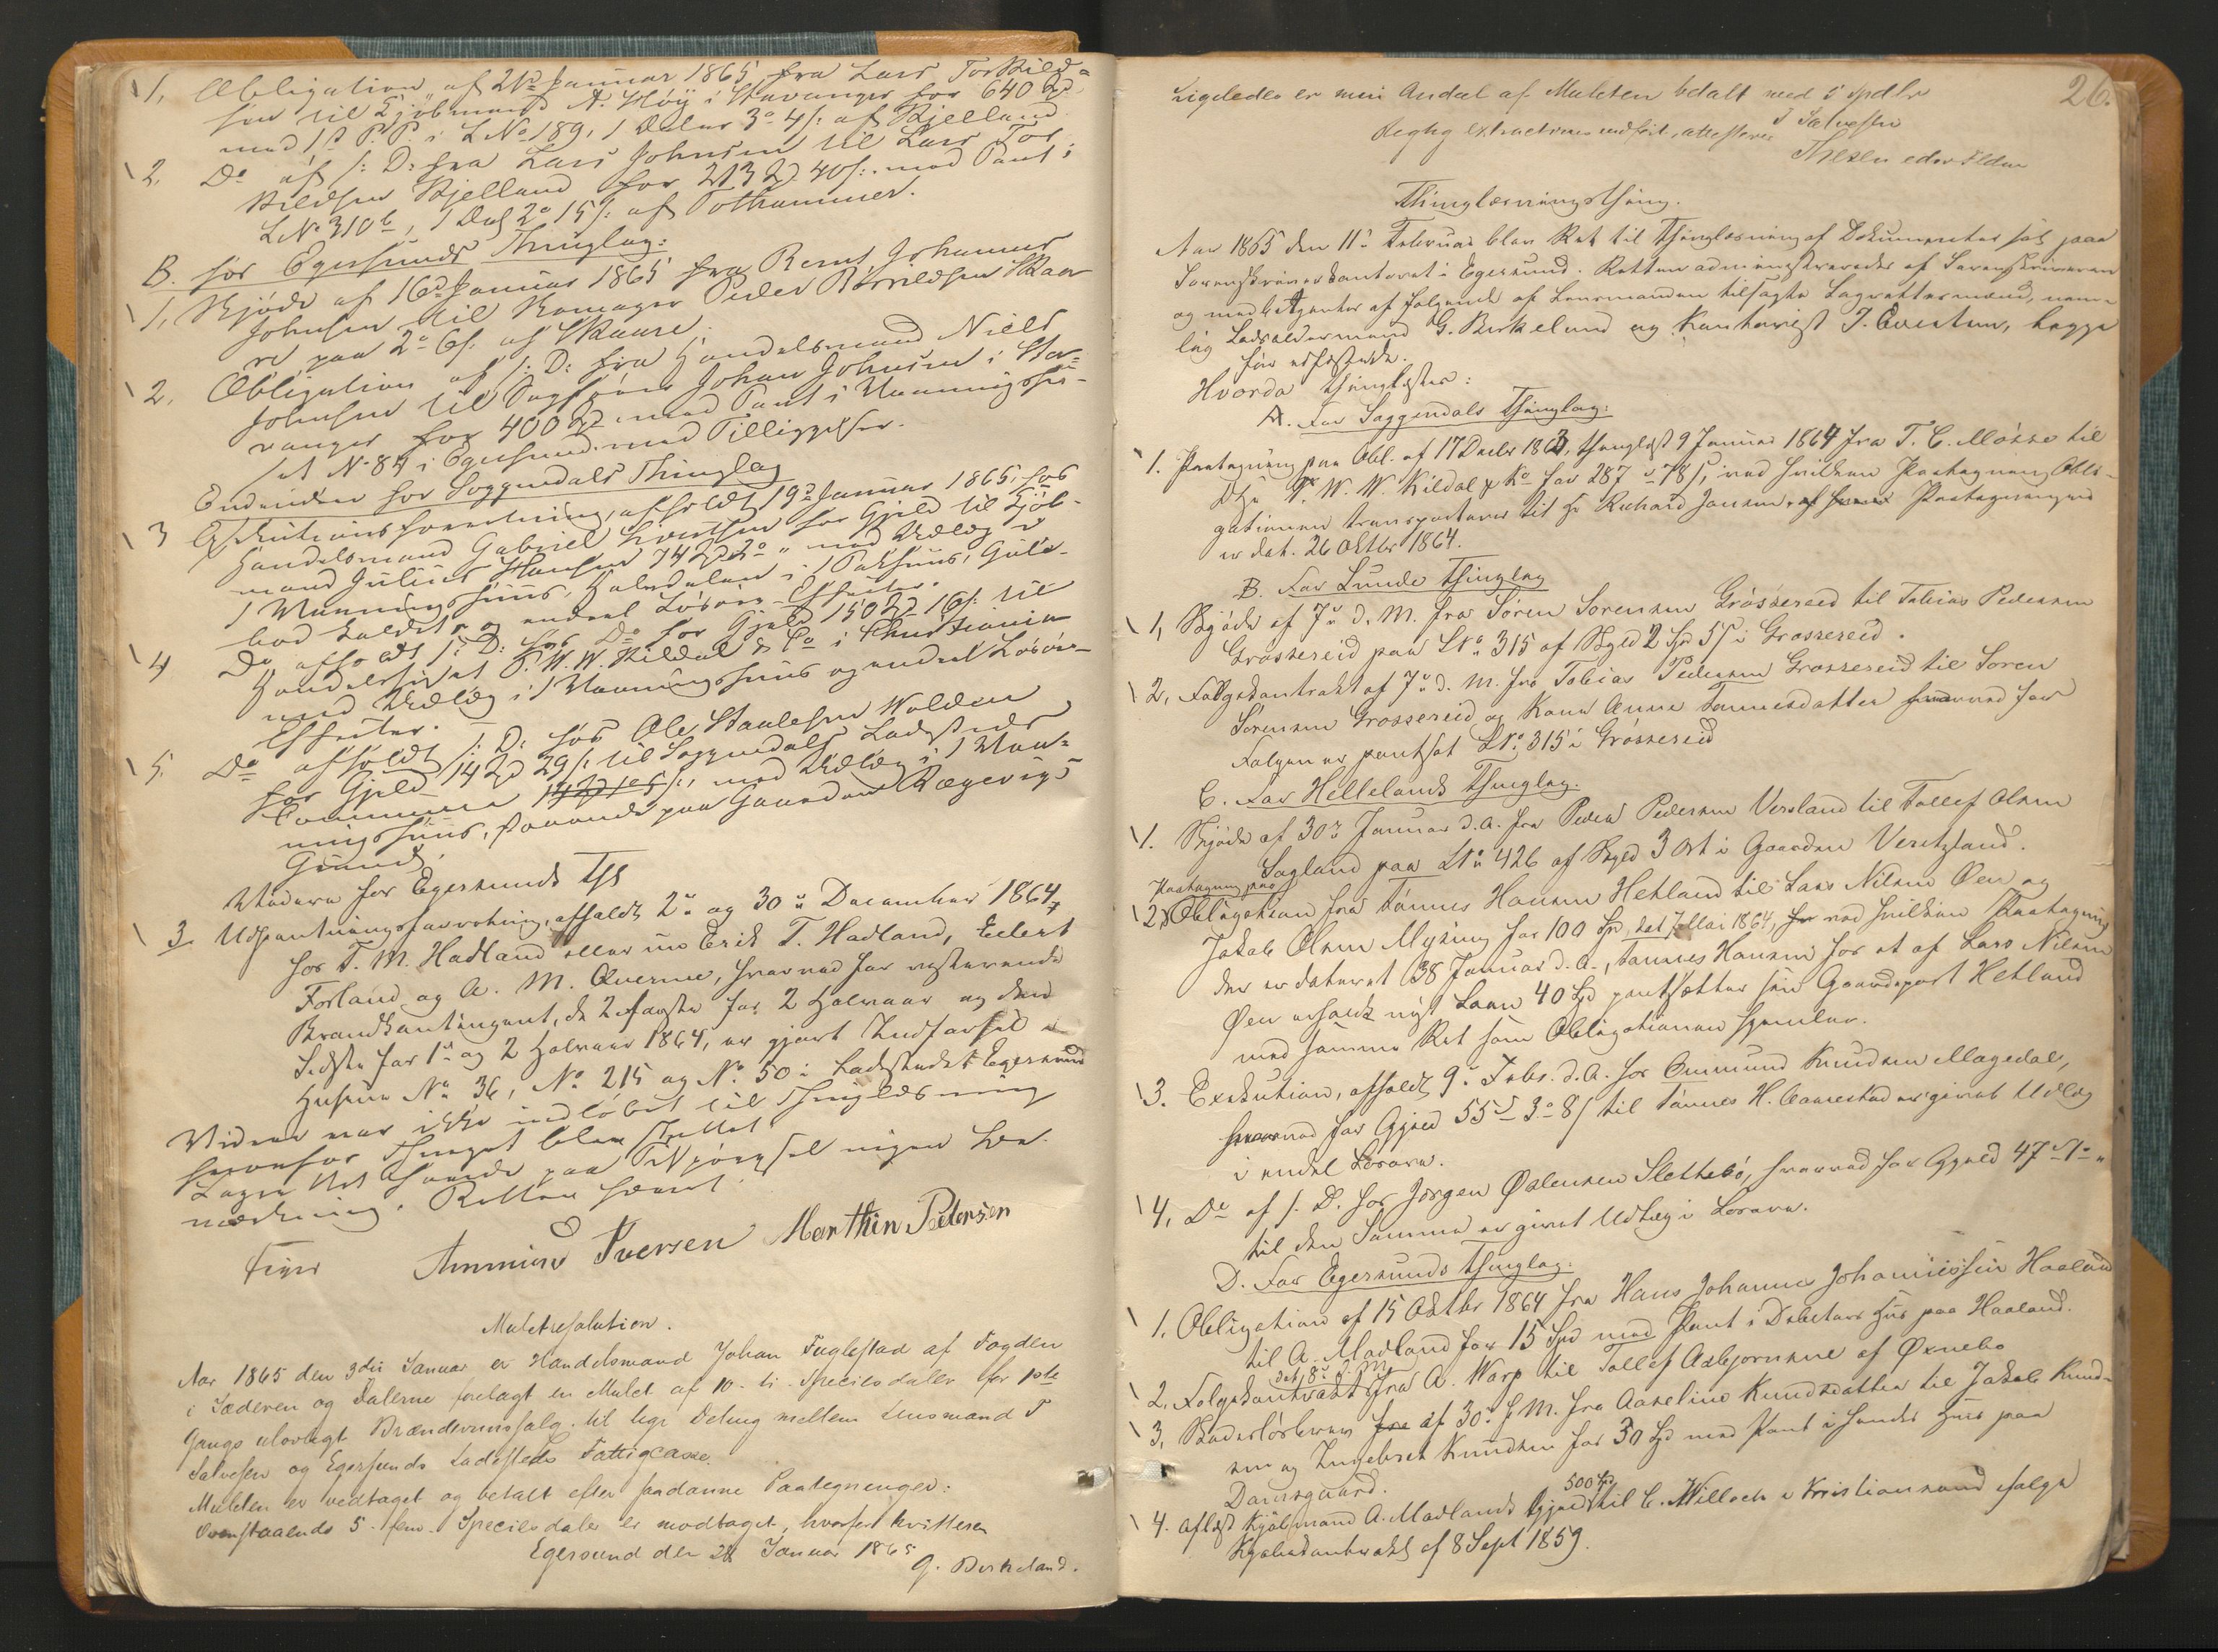 1, Obligation af 21de Januar 1865 fra Lars Torkild-
sen til Kjøbmand A. Høÿ i Stavanger for 640 Spd
med 1ste P. P. i L No 189, 1 Daler 3 o 4 s: af Kjelland
2. Do af s: D: fra Lars Johnsen til Lars Tor
kildsen Kjelland for 213 Spd 40 s:. med Pant i
L No 310 b, 1 Dal 2 o 15 s: af Tothammer.
B. for Egersunds Thinglag:
1, Skjøde af 16de Januar 1865 fra Bernt Johannes
Johnsen til Skomager Peder Skaa
re paa 2 o 6 s. af Skaare.
2. Obligation af s: D: fra Handelsmand Niels
Johnsen til Sagfører Johan Johnsen i Sta-
vanger for 400 Spd med Pant i Vaaningshu-
set No 84 i Egersund med Tilliggelser.
Endvidere for Soggendals Thinglag
3 Exekutionsforretning, afholdt 19de Januar 1865, hos
Handelsmand Gabriel for Gjeld til Kjøb-
mand Julius Hansen 74 Spd 2 o " med Udlæg i
1 Vaaningshuus, Halvdelen i 1 Pakhuus,
bod kaldet og andre Løsøre-Effecter.
4 Do afholdt s: D: hos Do for Gjeld 150 Spd 16 s: til
Handelshuset T. W. W. Kildal & Co i Christiania
med Udlæg i 1 Vaaningshuus og andre Løsøre-
Effecter.
5. Do afholdt s: D: hos Ole Staalesen Walden
for Gjeld 14 Spd 29 s: til Soggendals Ladesteds
Commune med Udlæg i 1 Vaa-
ningshuus, staaende paa Gaarden Rægevigs
Grund.
Videre for Egersunds Thl
3. Udpantningsforretning, afholdt 2 og 30 December 1864
hos T. M. Hadland eller nu Erik T. Hadland, Eilert
Forland og A. M. Qverme, hvorved for resterende
Brandkontingent, de 2 første for 2 Halvaar og den
Sidste for 1ste og 2 Halvaar 1864, er gjort Indførsel i
Husene No 36, No 215 og No 50 i Ladestedet Egersund
Videre var ikke indløbet til Thinglæsning
hvorefter Thinget blev sluttet.
Lagrettet havde paa Tilspørgsel ingen Be-
mærkning. Retten hævet.
Feyer Ammund Iversen Marthin Petersen
Mulctresolution.
Aar 1865 den 3die Januar er Handelsmand Johan Fuglestad af Fogden
i Jæderen og Dalerne forelagt en Mulct af 10 - ti - Speciesdaler for 1ste
Gangs ulovligt Brændeviinssalg til lige Deling mellem Lensmand T
Salvesen og Egersunds Ladesteds Fattigcasse.
Mulcten er vedtaget og betalt efter saadanne Paategninger:
Ovenstaaende 5 - fem - Speciesdaler er modtaget, hvorfor kvitteres
Egersund den 28 Januar 1865
G. Birkeland.
26.
Ligeledes er min Andel af Mulcten betalt med 5 Spdlr
T Salvesen
Rigtig extractviis indført, attesteres
Thinglæsningsthing.
Aar 1865 den 11te Februar blev Ret til Thinglæsning af Dokumenter sat paa
Sorenskriverkontoret i Egersund. Retten administreredes af Sorenskriveren
og med betjentes af følgende af Lensmanden tilsagte Lagrettesmænd, nem-
lig Lodsoldermand G. Birkeland og Kontorist T. Evertsen, begge
før edfæstede.
Hvorda thinglæstes:
A. For Soggendals Thinglag:
1. Paategning paa Obl. af 17 Decbr 1863, thinglæst 9 Januar 1864 fra T. C. Mosse til
Dhr T. W. W. Kildal & Ko for 287 78 s, ved hvilken Paategning Obli-
gationen transporteres til Hr Richard Jansen. Paategningen
er dat. 26 Oktbr 1864.
B. For Lunde Thinglag
1, Skjøde af 7 d. M. fra Sören Sörensen Grössereid til Tobias Pedersen
Grössereid paa L No 315 af Skyld 2 Spd 5 s i Grössereid.
2. Følgekontrakt af 7 d. M. fra Tobias Pedersen Grössereid til Sören
Sörensen Grössereid og Kone Anne Tønnesdatter hvorved for
Følgen er pantsat L No 315 i Grössereid
C. For Hellelands Thinglag.
1. Skjøde af 30te Januar d. A. fra Peder Pedersen Versland til Tollef Olsen
Sagland paa L No 426 af Skyld 3 Ort i Gaarden Versland.
Paategning paa
2, Obligation fra Tönnes Hansen Hetland til Lars Nilsen Øen og
Jakob Olsen Mysing for 100 Spd, dat. Mai 1864, ved hvilken Paategning
der er dateret 28 Januar d. A., Tönnes Hansen for et af Lars Nilsen
Øen erholdt nyt Laan 40 Spd pantsætter sin Gaardspart Hetland
med samme Ret som Obligationen hjemler.
3. Exekution, afholdt 9 Febr. d. A. hos Ommund Knudsen Magedal,
hvorved for Gjeld 55 Spd 3 o 8 s til Tönnes H. Aarrestad er givet Udlæg
i endel Løsøre.
4. Do af s. D. hos Jörgen Ødensen Slettebø, hvorved for Gjeld 47 Spd 1 o "
til den Samme er givet Udlæg i Løsøre.
D. For Egersunds Thinglag:
1, Obligation af 15 Oktbr 1864 fra Hans Johannes Johannessen Haaland
til A. Madland for 15 Spd med Pant i Debitors Hus paa Haaland.
dat 8 d. M.
2. Følgekontrakt fra A. Varp til Tollef Asbjørnsen af Øxnebø
3, Skadesløsbrev fra af 30 f M. fra Aaseline Knudsdatter til Jakob Knud-
sen og Ingebret Knudsen for 30 Spd med Pant i hendes Hus paa
Damsgaard.
500 Spd
4. Aflæst Kjöbmand A. Madlands Gjæld til C. Willoch i Kristiansand ifølge
Kjøbekontrakt af 8 Sept 1859.